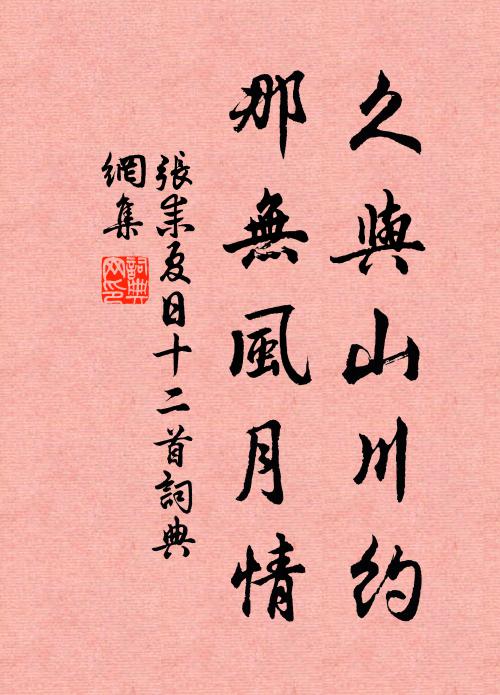 久與山川約
那無風月情
張耒夏日十二首詞典
網集
詞典網印